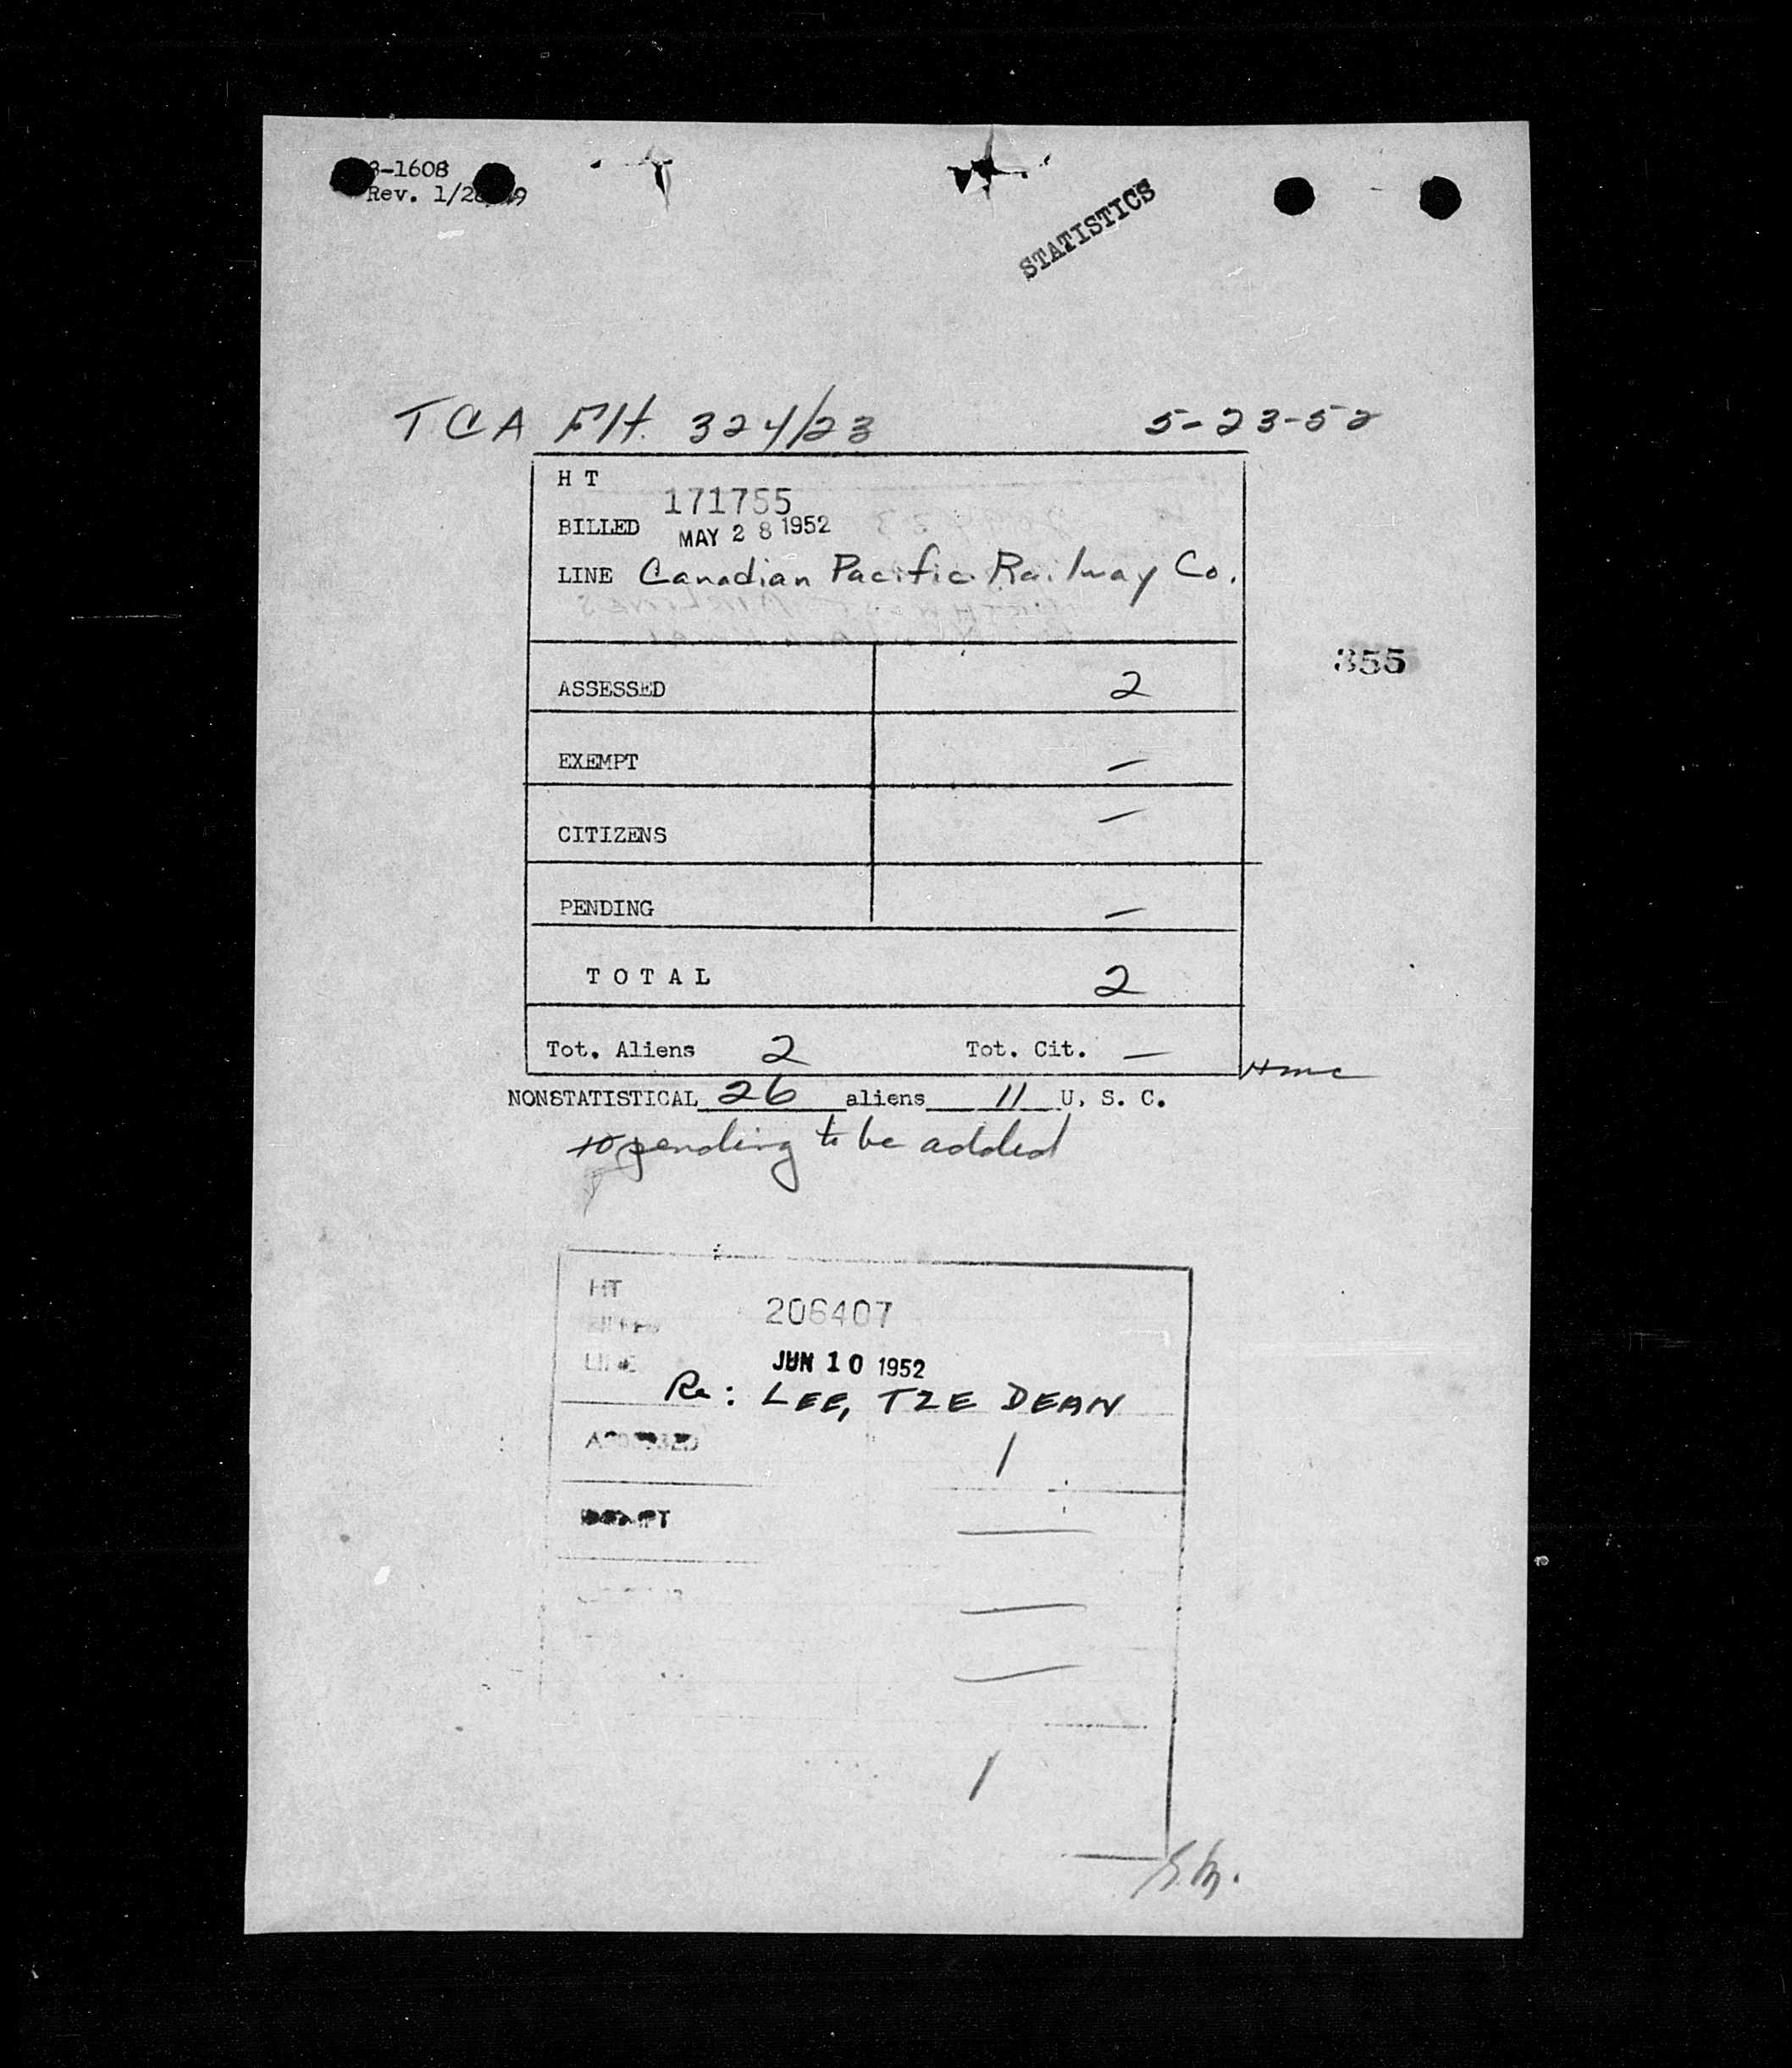 3-1608
Rev. 1/2 49
STATISTICS
TCA Flt. 324/23 5-23-52
H T 171755
BILLED MAY 28 1952
LINE Canadian Pacific Railway Co.
355
ASSESSED 2
EXEMPT —
CITIZENS —
PENDING —
T O T A L 2
Tot. Aliens 2 Tot. Cit. —
NONSTATISTICAL 26 aliens 11 U. S. C.
pending to be added
HT 206407
LINE JUN 10 1952
Re: LEE, TZE DEAN
ASSESSED 1
EXEMPT —
—
—
1